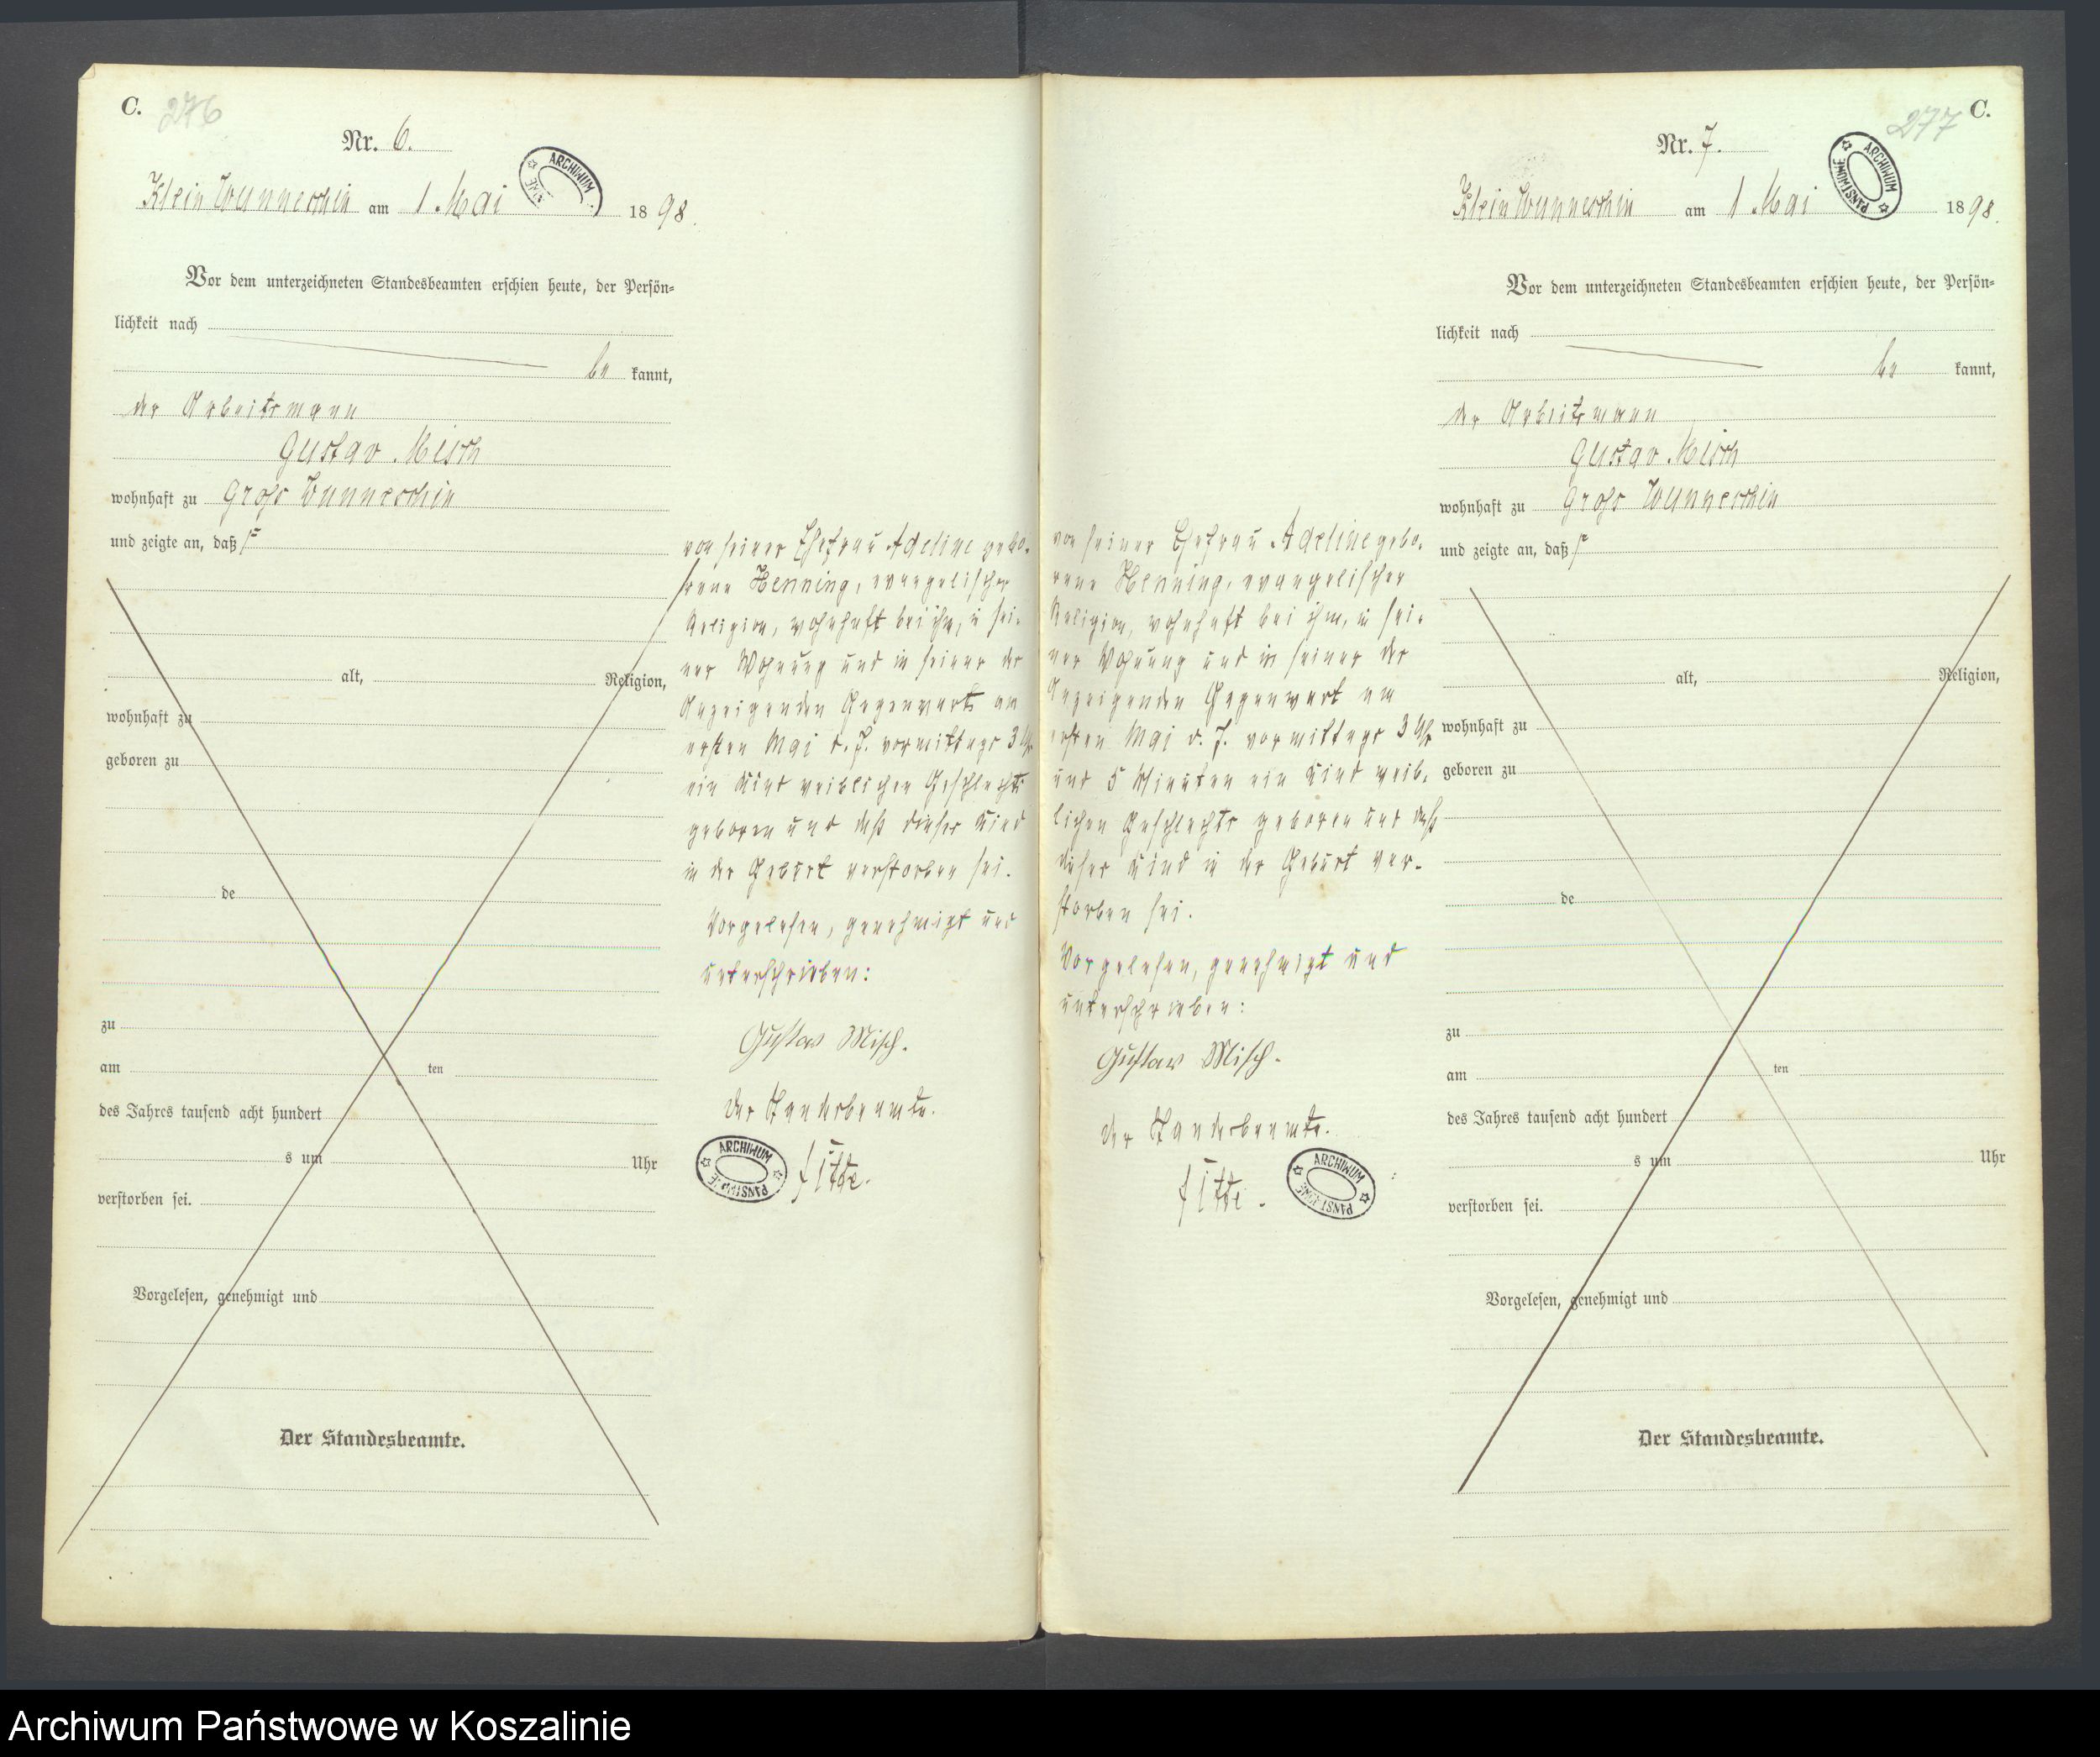 C. 276
Nr. 6.
Klein Wunneschin am 1. Mai 1898.
Vor dem unterzeichneten Standesbeamten erschien heute, der Persön-
lichkeit nach
be kannt,
der Arbeitsmann
Gustav Misch
wohnhaft zu Groß Wunneschin
und zeigte an, daß
alt, Religion,
wohnhaft zu
geboren zu
de
zu
am ten
des Jahres tausend acht hundert
s um Uhr
verstorben sei.
Vorgelesen, genehmigt und
Der Standesbeamte.
von seiner Ehefrau Adeline gebo-
rene Henning, evangelischer
Religion, wohnhaft bei ihm, in sei-
ner Wohnung und in seiner des
Anzeigenden Gegenwart am
ersten Mai d. J. vormittags 3 Uhr
ein Kind weiblichen Geschlechts
geboren und daß dieses Kind
in der Geburt verstorben sei.
Vorgelesen, genehmigt und
unterschrieben:
Gustav Misch.
Der Standesbeamte.
ARCHIWUM
C. 277
Nr. 7.
Klein Wunneschin am 1. Mai 1898.
ARCHIWUM PAŃSTWOWE
Vor dem unterzeichneten Standesbeamten erschien heute, der Persön-
lichkeit nach
be kannt,
der Arbeitsmann
Gustav Misch
wohnhaft zu Groß Wunneschin
und zeigte an, daß
von seiner Ehefrau Adeline gebo-
rene Henning, evangelischer
Religion, wohnhaft bei ihm, in sei-
ner Wohnung und in seiner des
Anzeigenden Gegenwart am
ersten Mai d. J. vormittags 3 Uhr
und 5 Minuten ein Kind weib-
lichen Geschlechts geboren und daß
dieses Kind in der Geburt ver-
storben sei.
Vorgelesen, genehmigt und
unterschrieben:
Gustav Misch.
Der Standesbeamte.
ARCHIWUM
alt, Religion,
wohnhaft zu
geboren zu
de
zu
am ten
des Jahres tausend acht hundert
s um Uhr
verstorben sei.
Vorgelesen, genehmigt und
Der Standesbeamte.
Archiwum Państwowe w Koszalinie